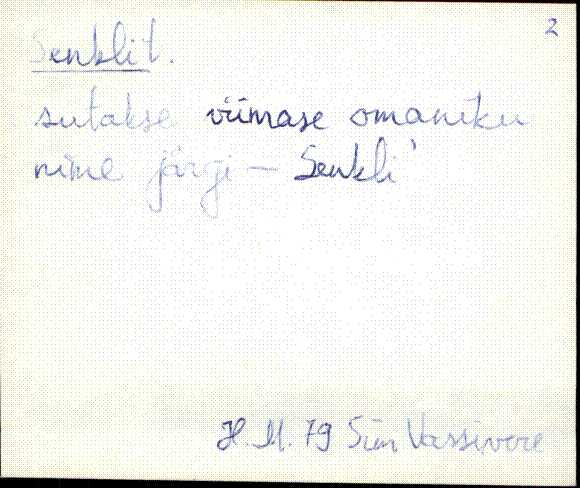 2
Senklit.
sutakse viimase omaniku
nime järgi — Senkli'
H. M. 79 Siim Vassivere